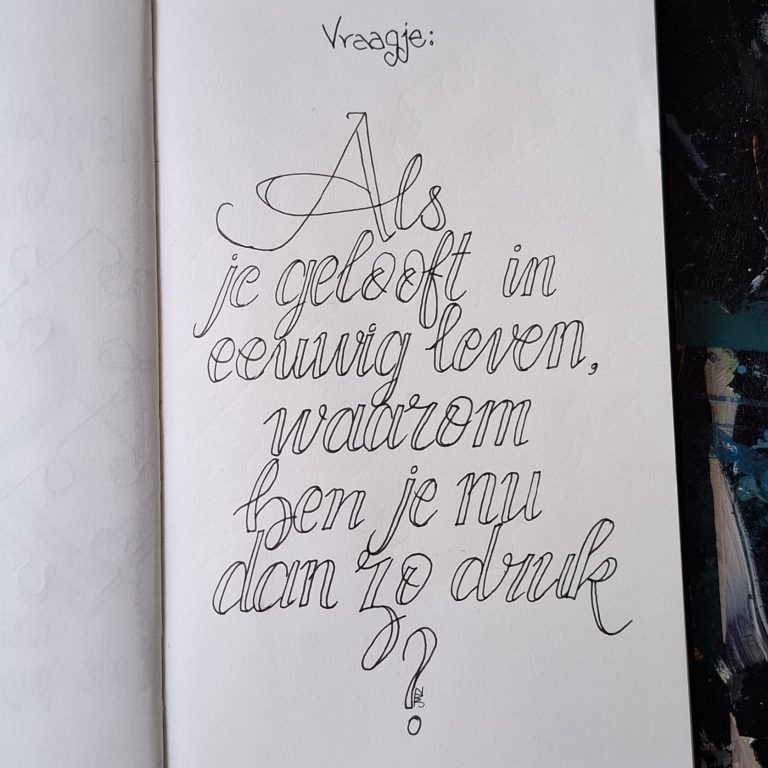 Vraagje:
Als
je gelooft in
eeuwig leven,
waarom
ben je nu
dan zo druk
?